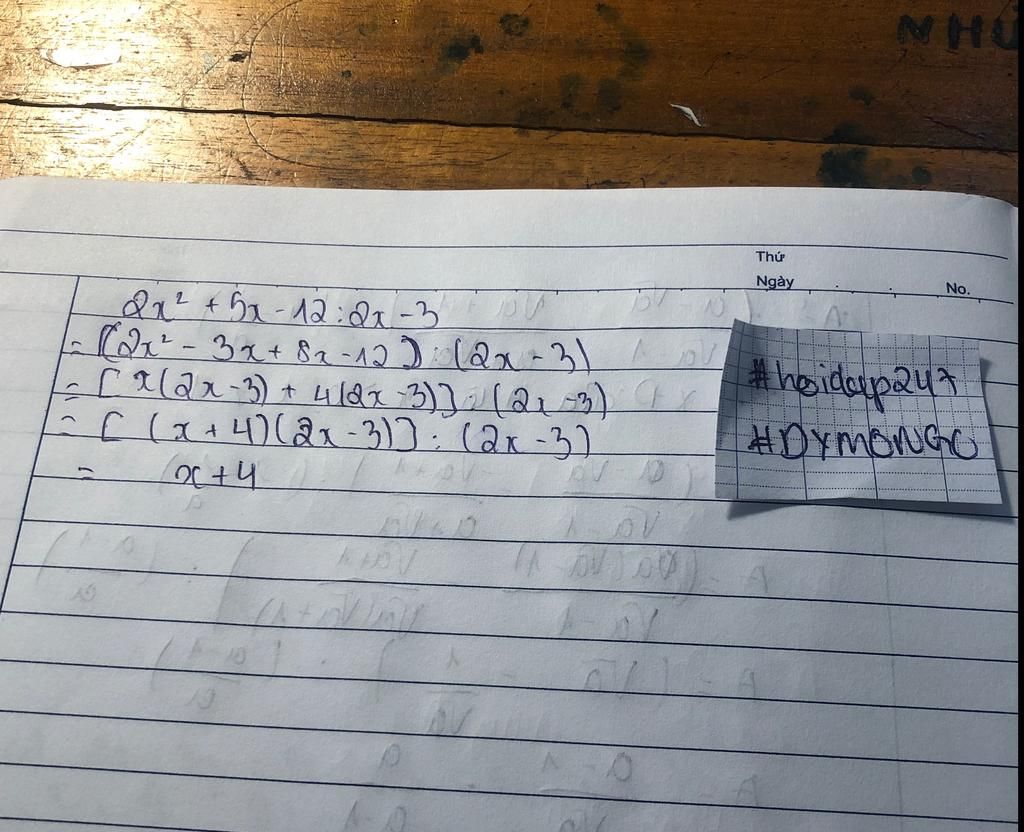 NHU
Thứ
Ngày
No.
2x² + 5x - 12 : 2x - 3
= [(2x² - 3x + 8x - 12)] : (2x - 3)
= [x(2x - 3) + 4(2x - 3)] : (2x - 3)
= [(x + 4)(2x - 3)] : (2x - 3)
= x + 4
#hoidap247
#DYMONGO